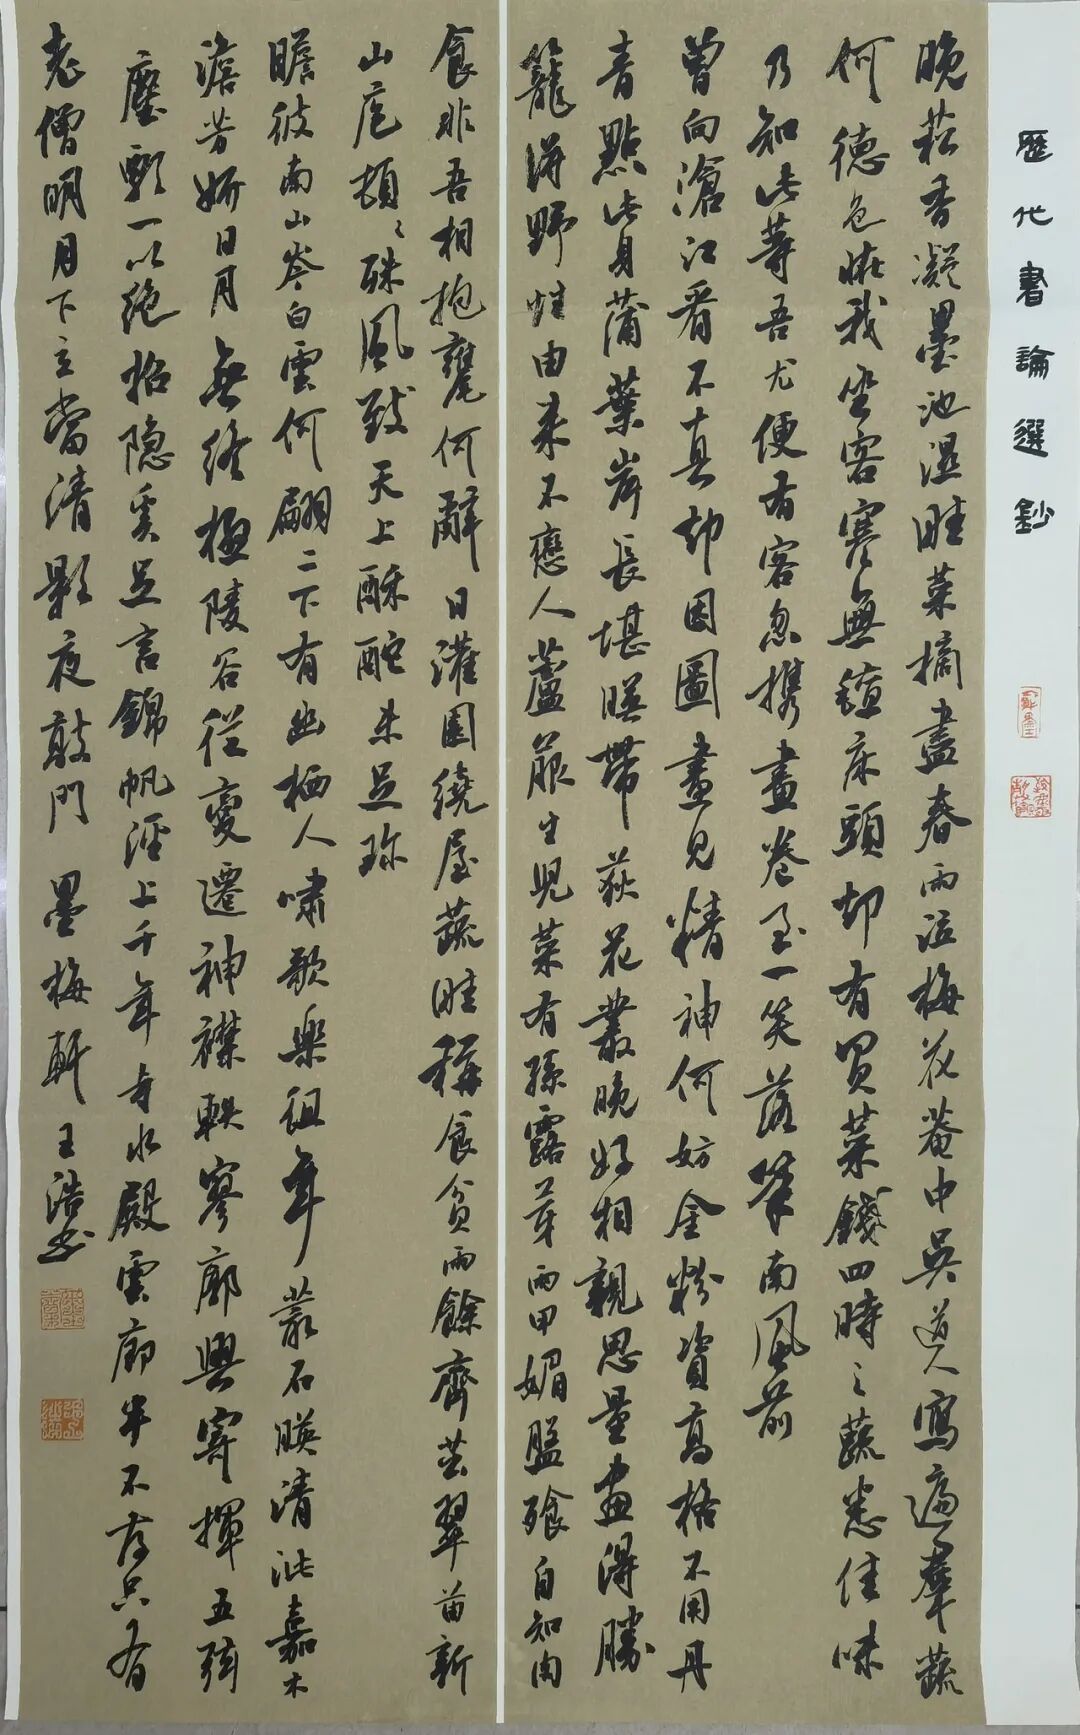 歷代書論選鈔
晚菘香凝墨池濕畦菜摘盡春雨泣梅花菴中吳道人寫遍群蔬
何德色嗟我坐客寒無氈床頭却有買菜錢四時之蔬悉佳味
乃知此等吾尤便有客忽攜畫卷至一笑落筆南風前
曾向滄江看不真却因圖畫見精神何妨金粉資高格不用丹
青點此身蒲葉岸長堪映帶荻花叢晚好相親思量畫得勝
籠得野性由來不戀人蘆菔生兒菜有孫露芽雨甲媚盤飧自知肉
食非吾相抱甕何辭日灌園繞屋蔬畦稱食貧雨餘薺芸翠苗新
山庖頓頓殊風致天上酥酡未足珍
瞻彼南山岑白雲何翩二下有幽栖人嘯歌樂徂年叢石映清泚嘉木
澹芳妍日月無終極陵谷從變遷神襟軼寥廓興寄揮五弦
塵鞅一以絕招隱奚足言錦帆涇上千年寺水殿雲廊半不存只有
老僧明月下立當清影夜敲門 墨梅軒王浩書